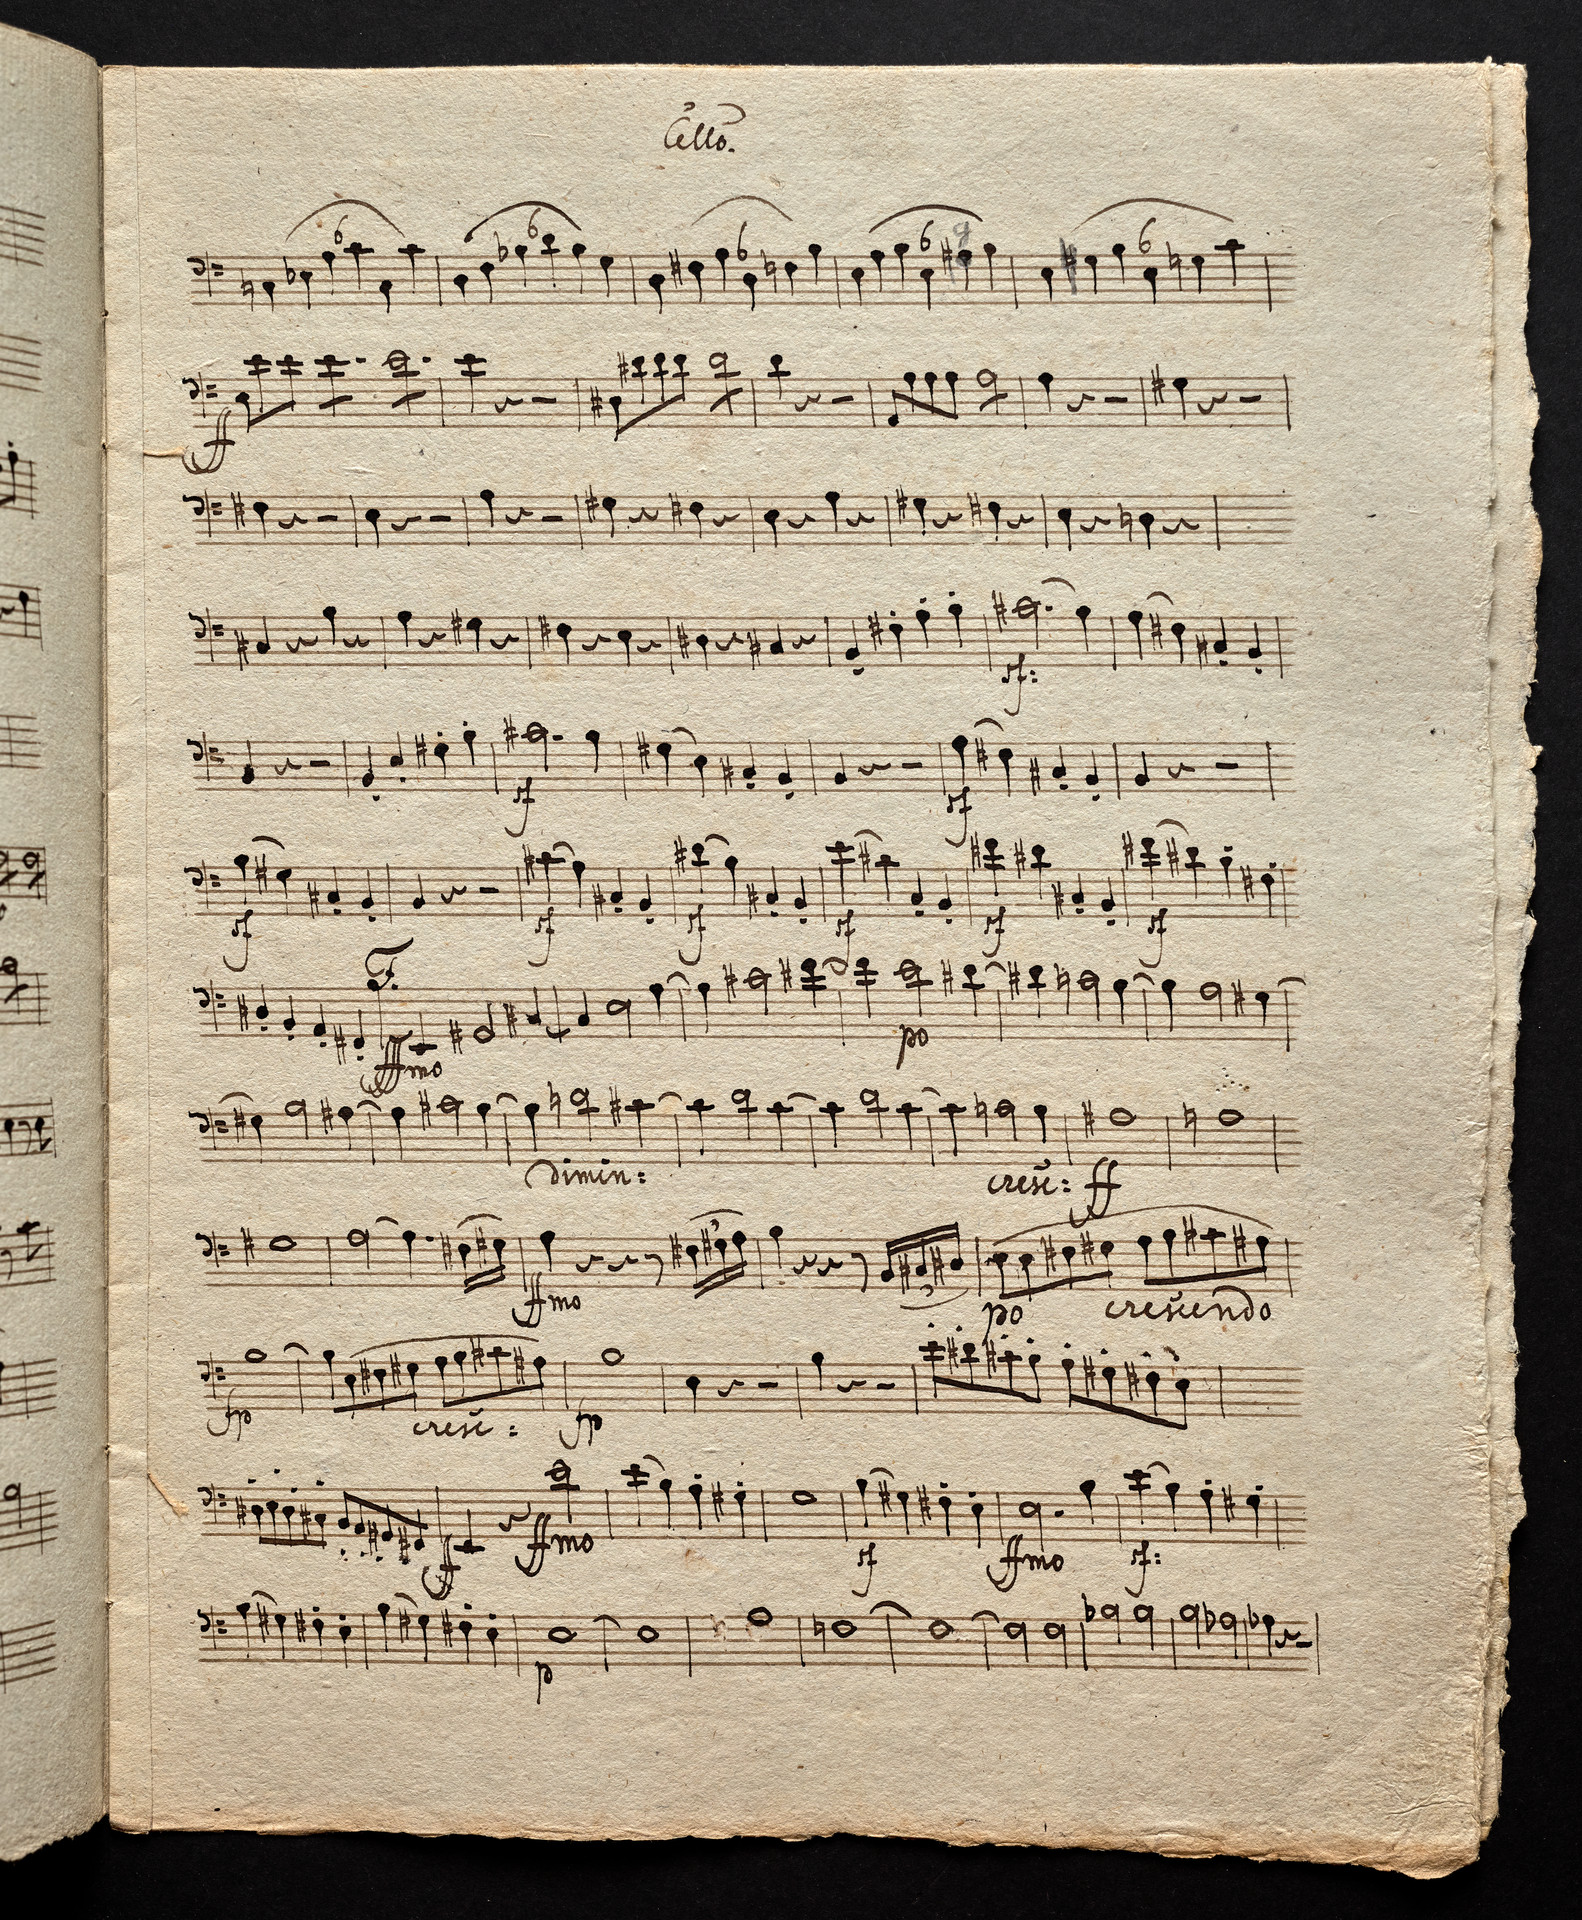 Cello.
6 6 6 6 6
ff
sf:
sf sf
sf sf sf sf sf sf
F.
fffmo po
dimin: cresc: ff
3
ffmo 3 po crescendo
fp cresc: fp
ff ffmo sf ffmo sf:
p